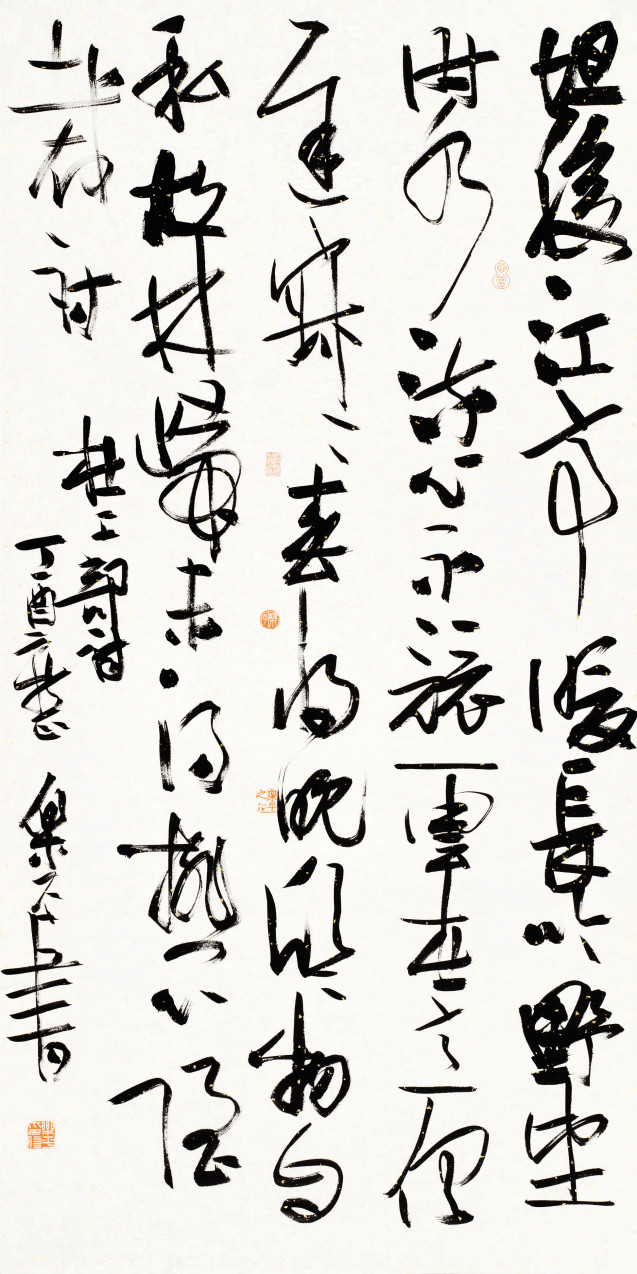 坦腹江亭暖長吟野望
時水流心不競雲在意俱
遲寂〻春將晚欣〻物自
私故林歸未得排悶強
裁詩
杜工部詩
丁酉
樂平書